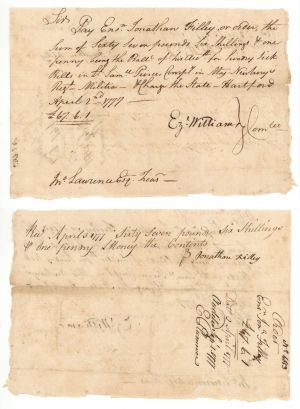 Sir
Pay Ensn Jonathan Filley, or order, the
Sum of Sixty Seven pounds Six Shillings & one
penny being the Balle of his for Sundry Sick
Bills in Lt Saml Compy in Roger Newberrys
Regt Militia — & Charge the State — Hartford
April 2nd 1777 —
£67.6.1
Ezr Williams } Comtee
Jno Lawrence Esqr Treasr —
Recd April 5 1777 Sixty Seven pounds Six Shillings
& one penny Money the Contents
Jonathan Filley
Order
Ensn Jonn Filley
£67.6.1
April 1777
1777